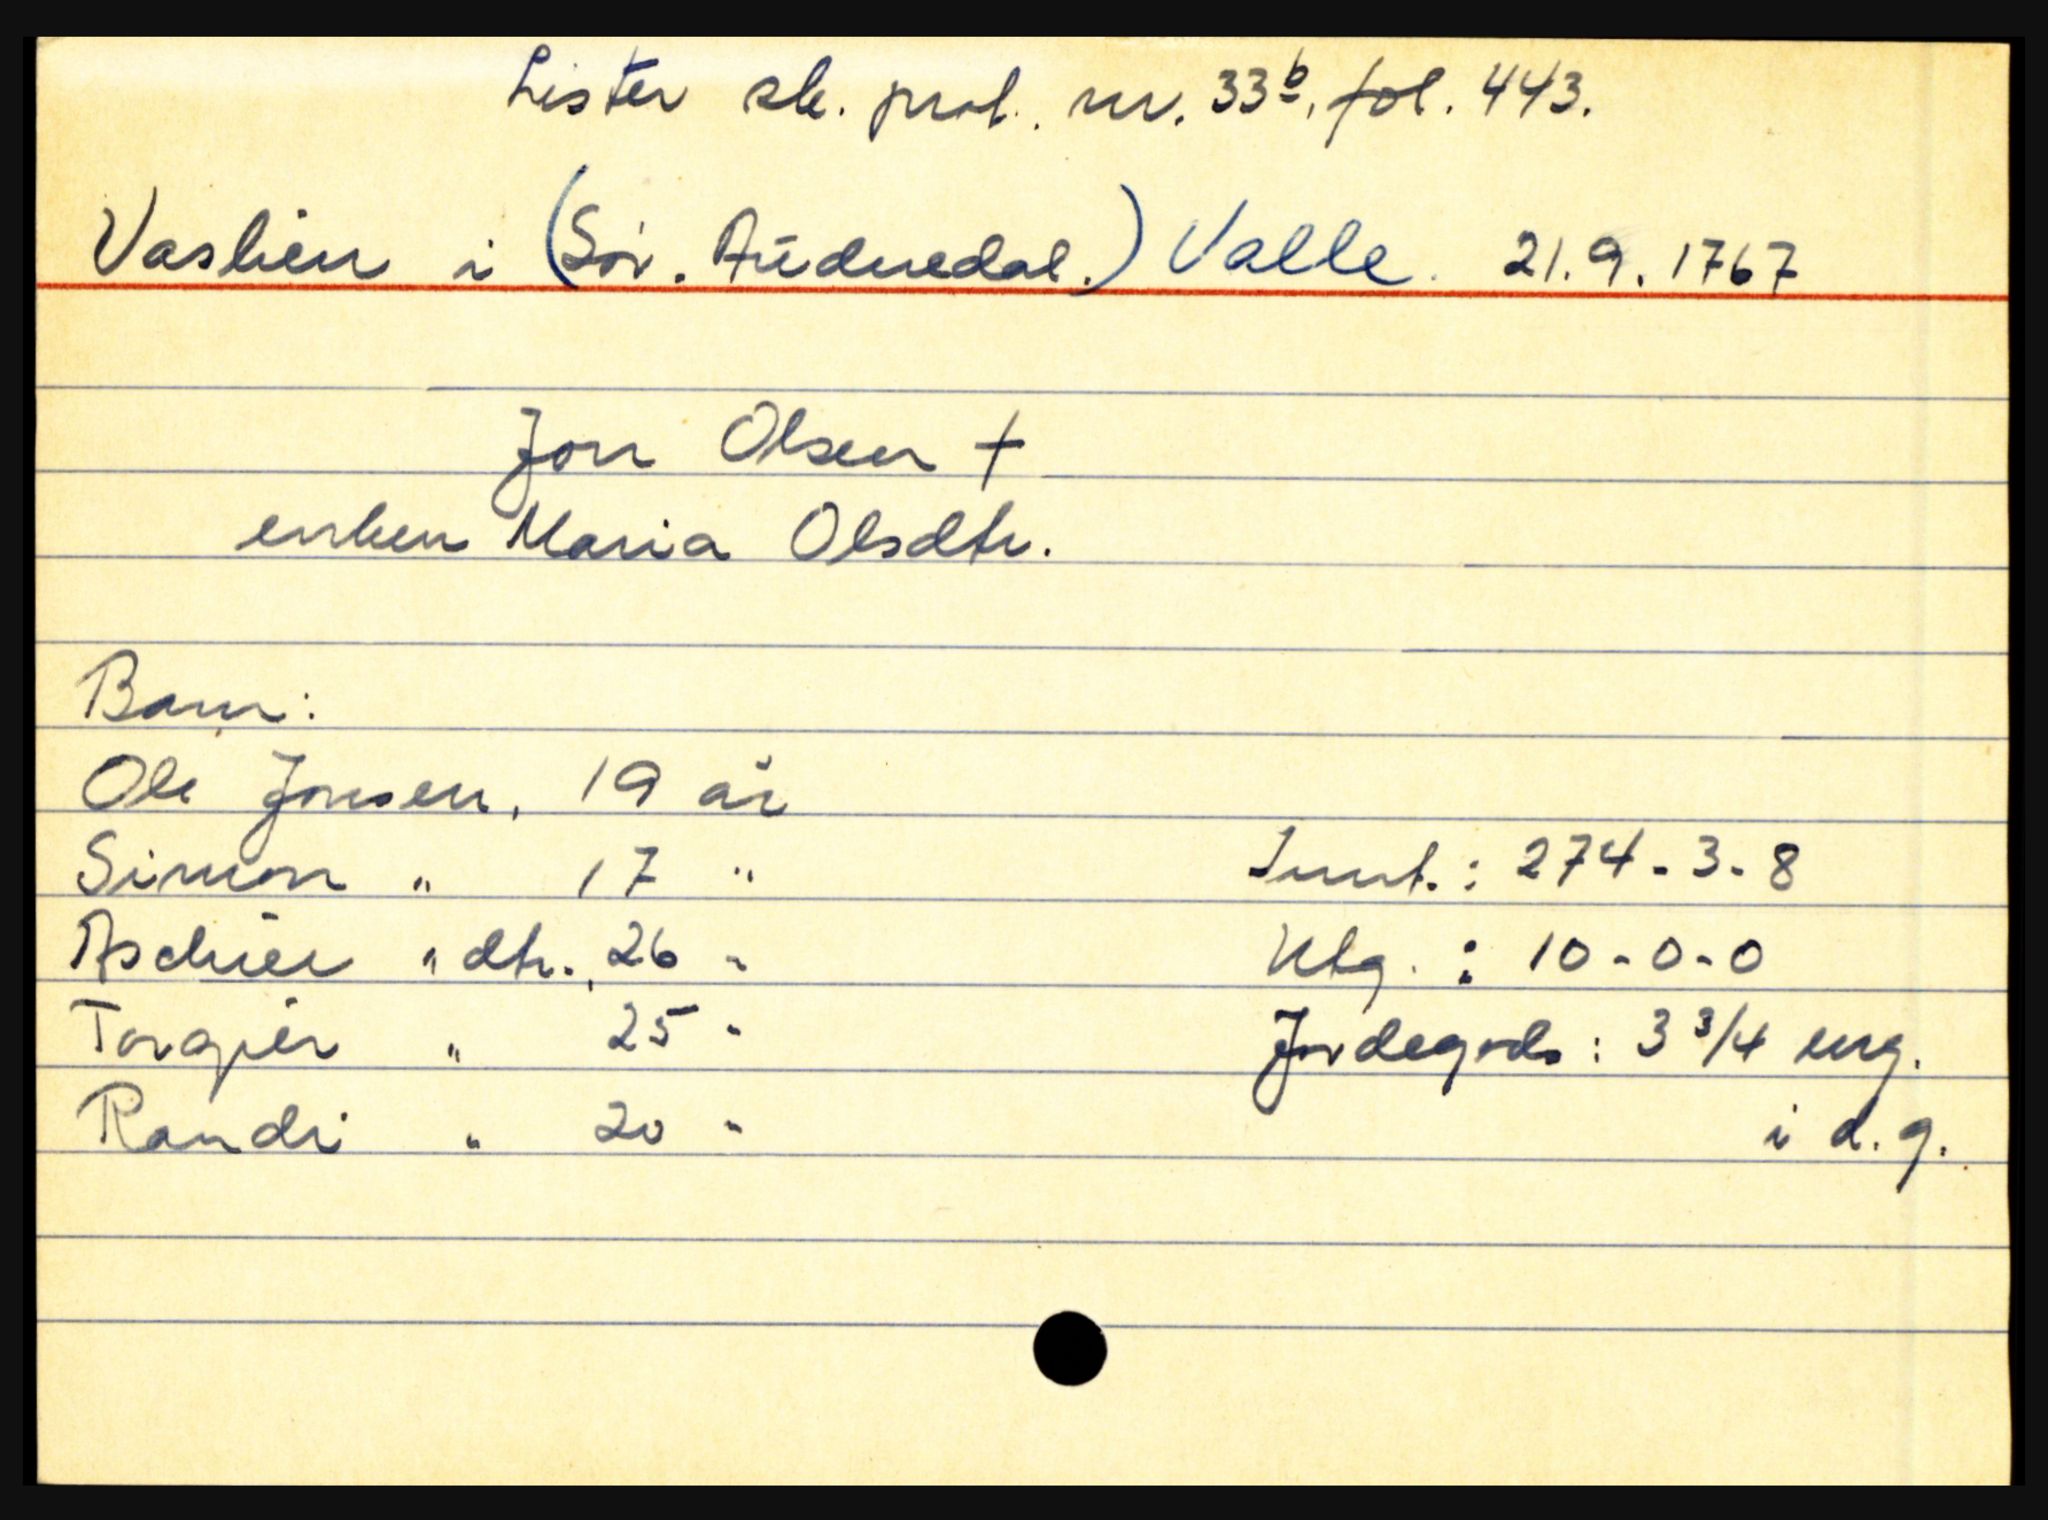 Lister sk. prot. nr. 33b, fol. 443.
Vaslien i (Sør. Audnedal.) Valle. 21.9.1767
Jon Olsen †
enken Maria Olsdtr.
Barn:
Ole Jonsen, 19 år
Simon " 17 " Innt.: 274-3-8
Aschier " dtr., 26 " Utg. : 10-0-0
Torgier " 25 " Jordegods: 3 3/4 eng.
Randi " 20 " i d.g.